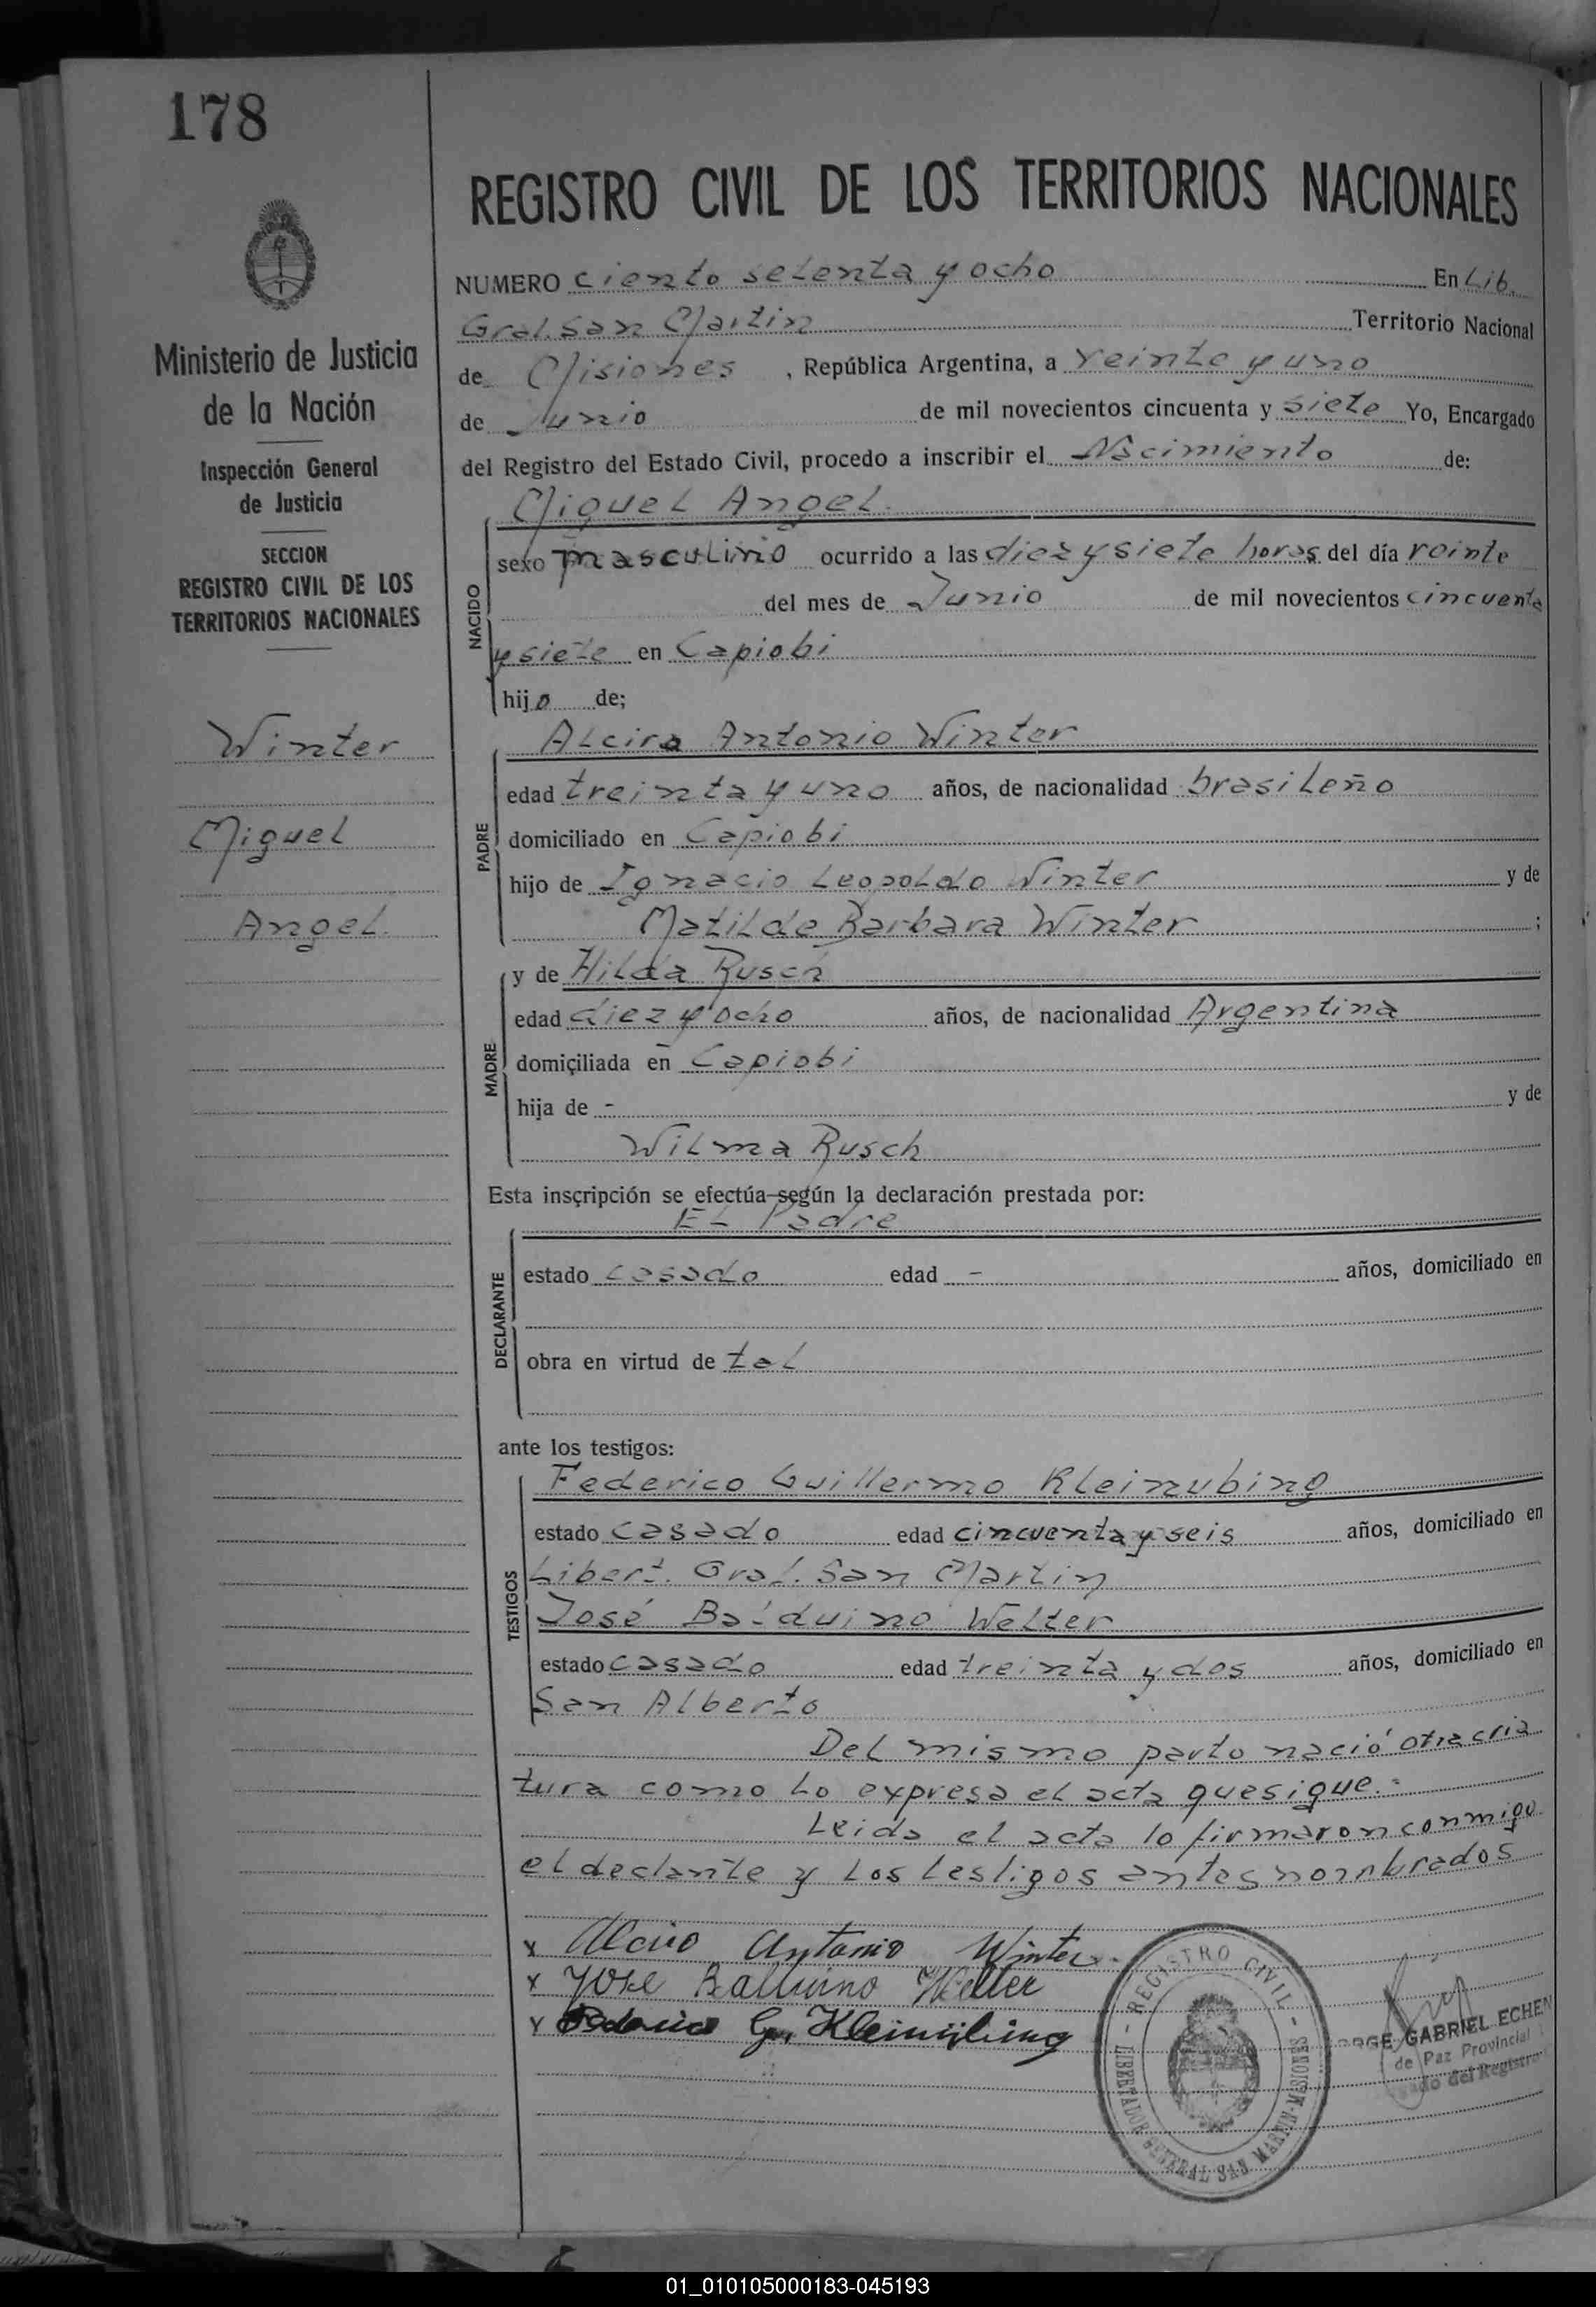 178
REGISTRO CIVIL DE LOS TERRITORIOS NACIONALES
NUMERO ciento setenta y ocho En Lib.
Gral. San Martin Territorio Nacional
de Misiones , República Argentina, a veinte y uno
de Junio de mil novecientos cincuenta y siete Yo, Encargado
del Registro del Estado Civil, procedo a inscribir el Nacimiento de:
Miguel Angel.
Ministerio de Justicia
de la Nación
Inspección General
de Justicia
SECCION
REGISTRO CIVIL DE LOS
TERRITORIOS NACIONALES
Winter
Miguel
Angel.
NACIDO
sexo masculino ocurrido a las diez y siete horas del día veinte
del mes de Junio de mil novecientos cincuenta
y siete en Capiobi
hijo de;
PADRE
Alciro Antonio Winter
edad treinta y uno años, de nacionalidad brasileño
domiciliado en Capiobi
hijo de Ignacio Leopoldo Winter y de
Matilde Barbara Winter ;
MADRE
y de Hilda Rusch
edad diez y ocho años, de nacionalidad Argentina
domiciliada en Capiobi
hija de - y de
Wilma Rusch
Esta inscripción se efectúa según la declaración prestada por:
DECLARANTE
El Padre
estado casado edad - años, domiciliado en
obra en virtud de tal
ante los testigos:
TESTIGOS
Federico Guillermo Kleinubing
estado casado edad cincuenta y seis años, domiciliado en
Libert. Gral. San Martin
José Balduino Welter
estado casado edad treinta y dos años, domiciliado en
San Alberto
Del mismo parto nació otra cria
tura como lo expresa el acta que sigue.-
Leida el acta lo firmaron conmigo
el declante y los testigos antes nombrados
x Alciro Antonio Winter.
x Jose Balduino Welter
x Federico G. Kleinübing
- REGISTRO CIVIL -
LIBERTADOR GENERAL SAN MARTIN-MISIONES
ORGE GABRIEL ECHEN
de Paz Provincial
gado del Registro
01_010105000183-045193